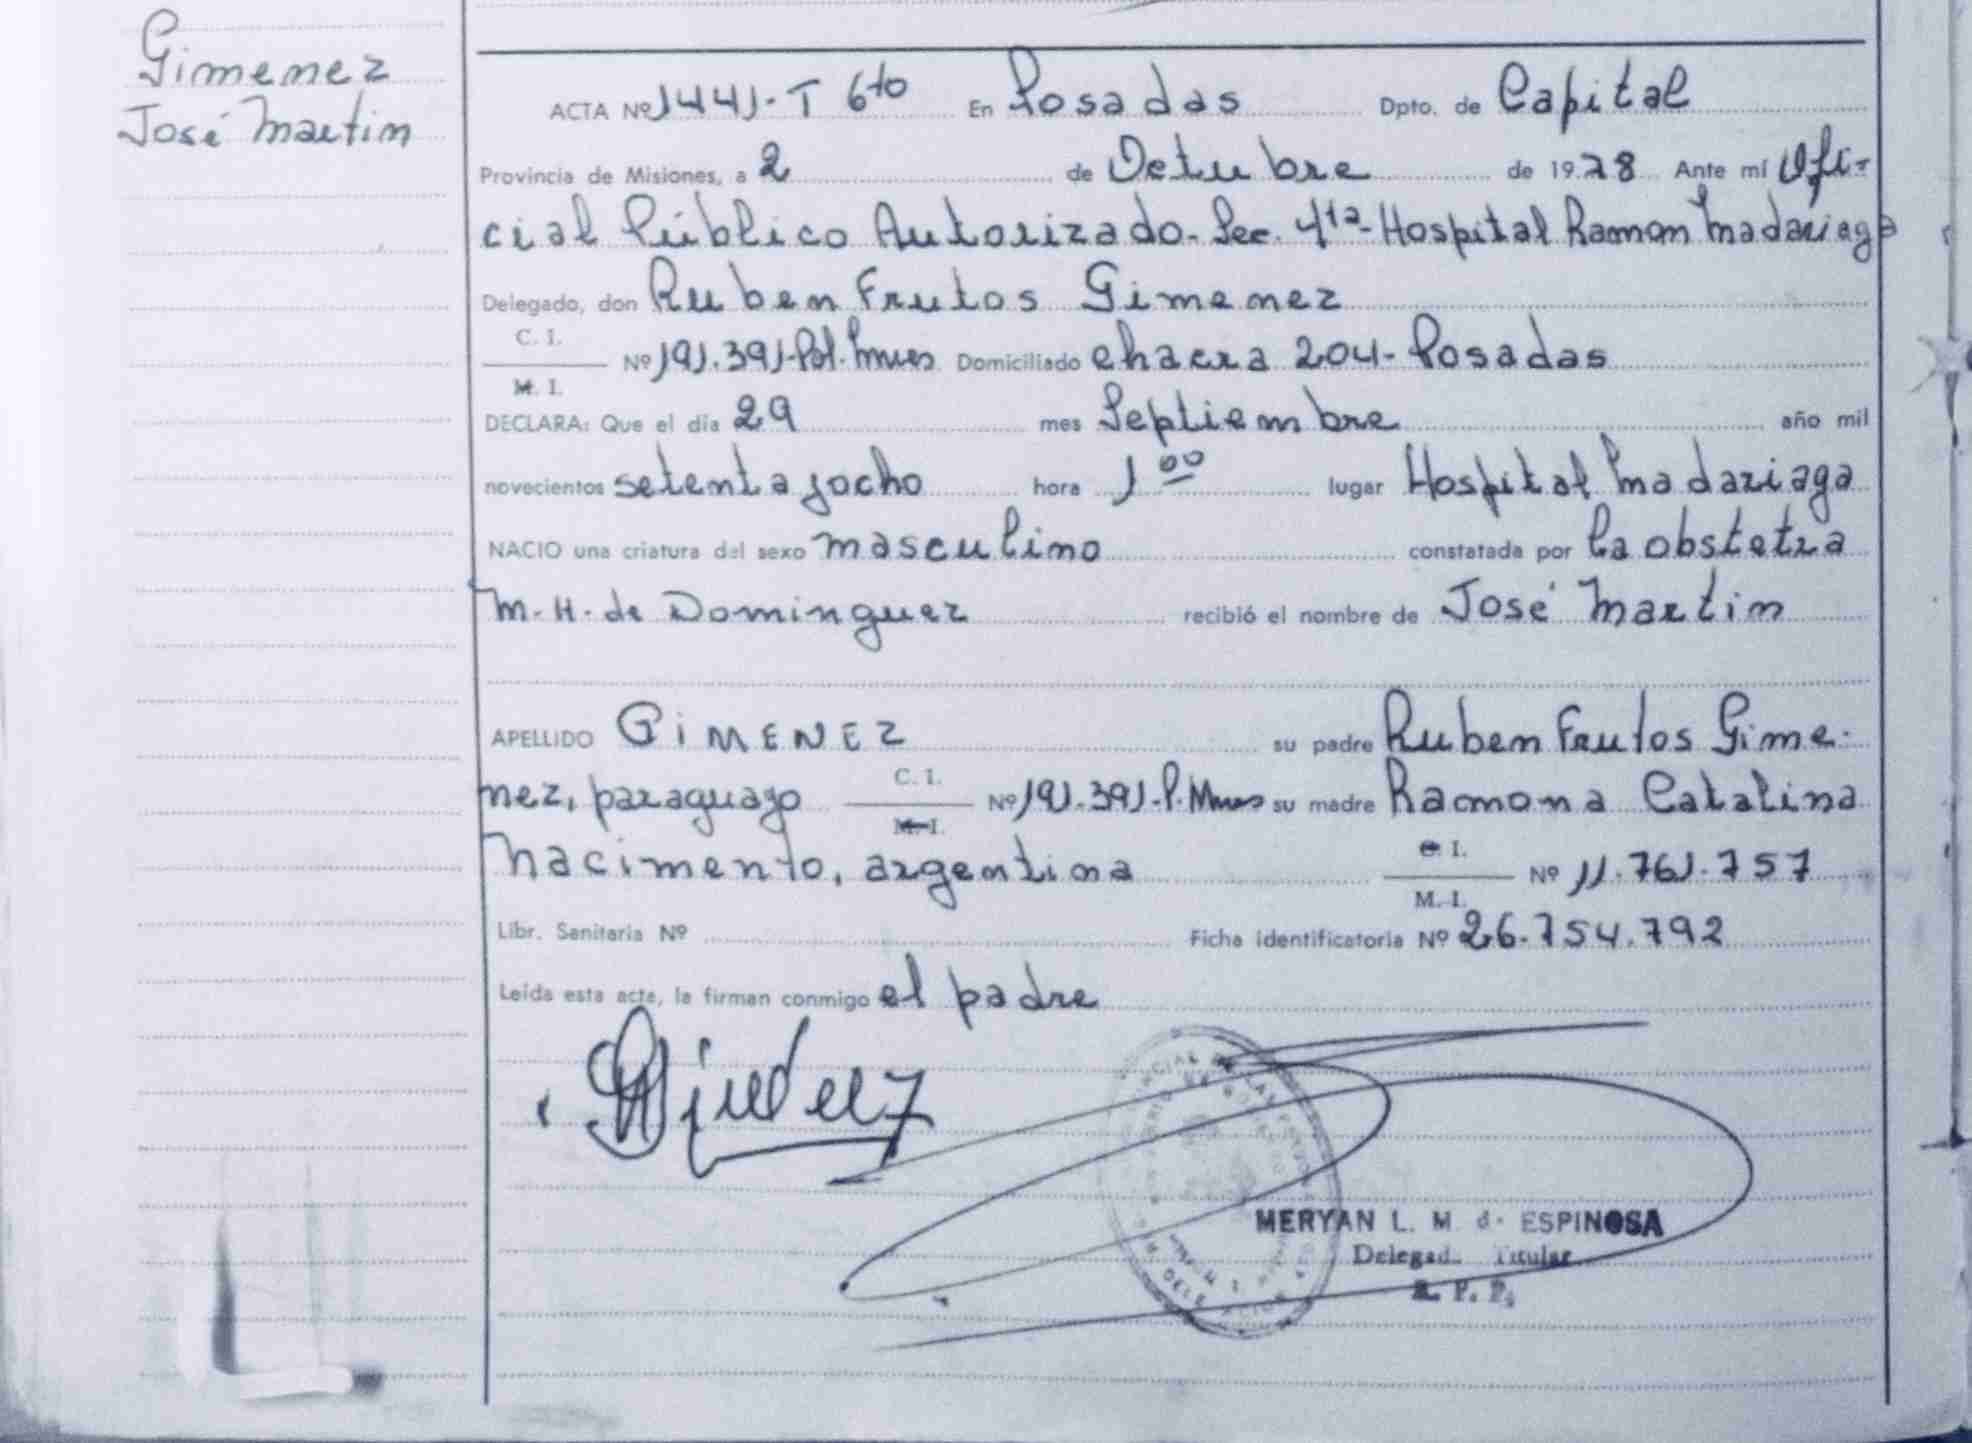 Gimenez
José Martin
ACTA Nº 1441-T 6to En Posadas Dpto. de Capital
Provincia de Misiones, a 2 de Octubre de 1978 Ante mí Ofi-
cial Público Autorizado-Sec. 4ta-Hospital Ramon Madariaga
Delegado, don Ruben Frutos Gimenez
C. I.
Nº 191.391-Pol. Mnes Domiciliado chacra 204-Posadas
M. I.
DECLARA: Que el día 29 mes Septiembre año mil
novecientos setenta yocho hora 1 00 lugar Hospital Madariaga
NACIO una criatura del sexo masculino constatada por la obstetra
M. H. de Dominguez recibió el nombre de José Martin
APELLIDO GiMENEZ su padre Ruben Frutos Gime-
nez, paraguayo C. I. Nº 191.391-P. Mnes su madre Ramona Catalina
M. I.
Nacimento, argentina C. I. Nº 11.761.757
M. I.
Libr. Sanitaria Nº Ficha identificatoria Nº 26.754.792
Leída esta acta, la firman conmigo el padre
MERYAN L. M. de ESPINOSA
Delegad. Titular
R. P. P.